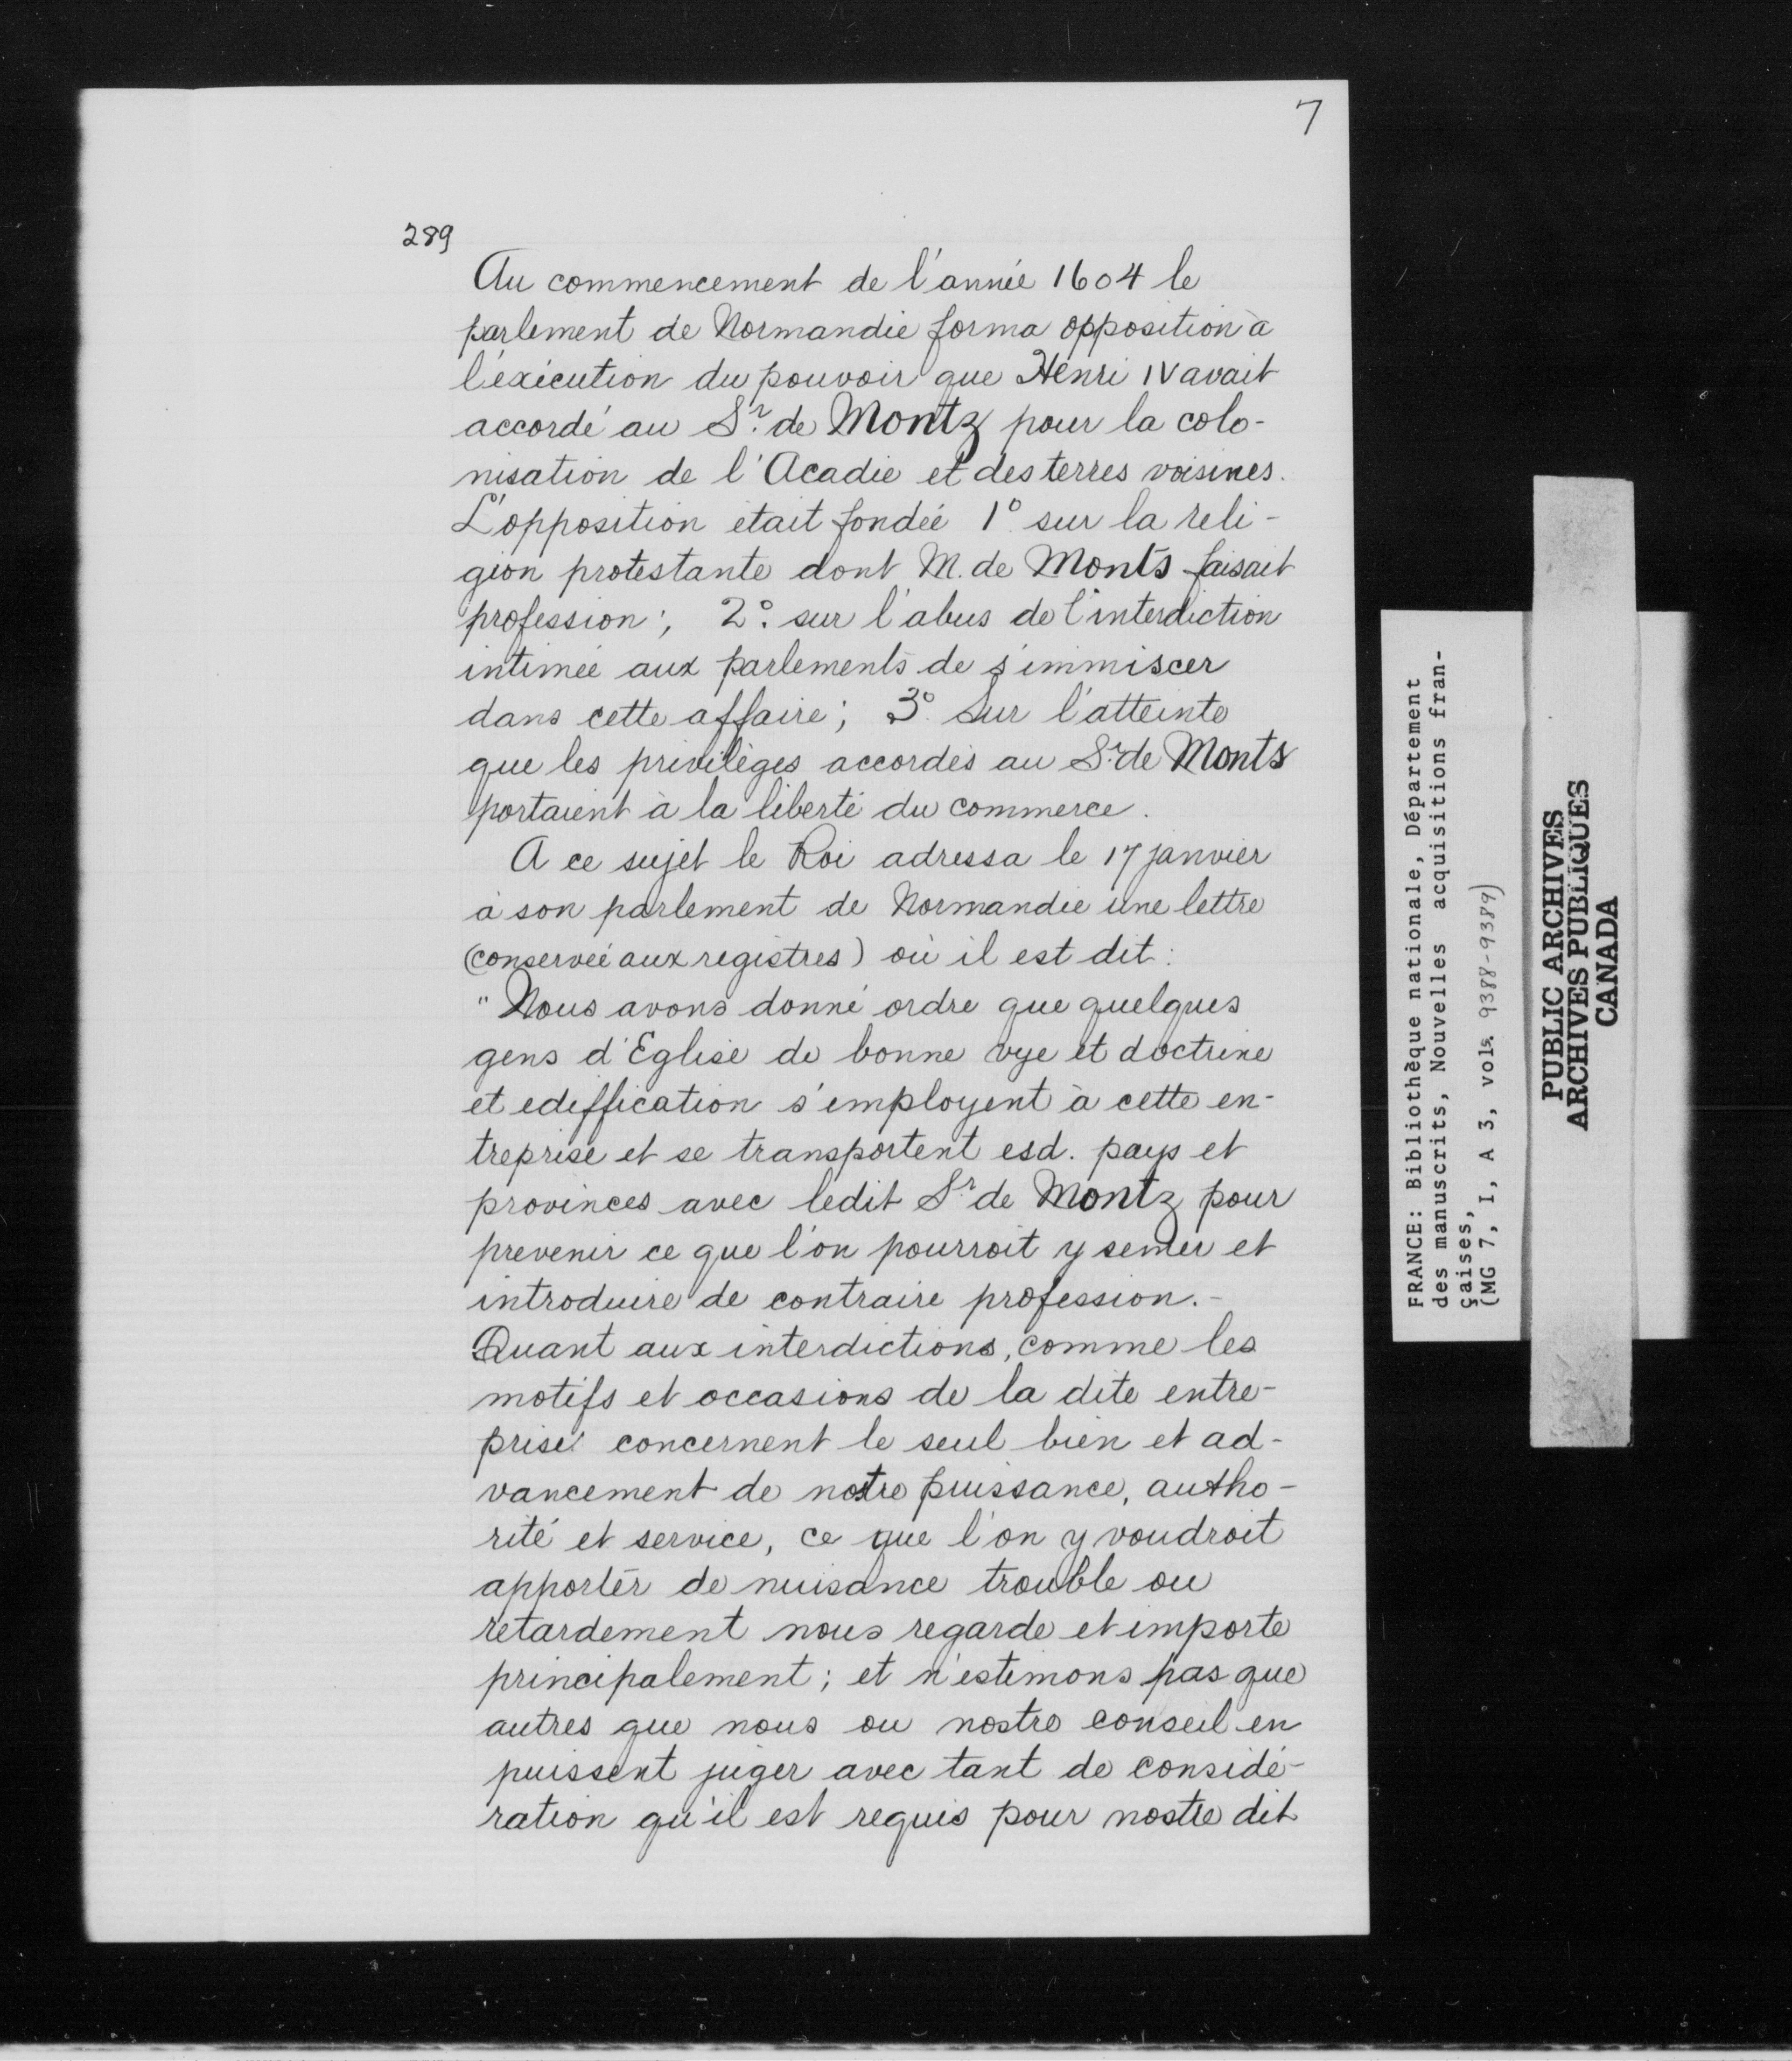 7
289
Au commencement de l'année 1604 le
parlement de Normandie forma opposition à
l'exécution du pouvoir que Henri IV avait
accordé au Sr. de Montz pour la colo-
nisation de l'Acadie et des terres voisines.
L'opposition était fondée 1o sur la reli-
gion protestante dont M. de Monts faisait
profession; 2o. sur l'abus de l'interdiction
intimée aux parlements de s'immiscer
dans cette affaire; 3o. sur l'atteinte
que les privilèges accordés au Sr. de Monts
portaient à la liberté du commerce.
A ce sujet le Roi adressa le 17 janvier
à son parlement de Normandie une lettre
(conservée aux registres) où il est dit:
"Nous avons donné ordre que quelques
gens d'Eglise de bonne vye et doctrine
et ediffication s'employent à cette en-
treprise et se transportent esd. pays et
provinces avec ledit Sr. de Montz pour
prevenir ce que l'on pourroit y semer et
introduire de contraire profession.-
Quant aux interdictions, comme les
motifs et occasions de la dite entre-
prise concernent le seul bien et ad-
vancement de nostre puissance, autho-
rité et service, ce que l'on y voudroit
apporter de nuisance trouble ou
retardement nous regarde et importe
principalement; et n'estimons pas que
autres que nous ou nostre conseil en
puissent juger avec tant de considé-
ration qu'il est requis pour nostre dit
FRANCE: Bibliothèque nationale, Département
des manuscrits, Nouvelles acquisitions fran-
çaises,
(MG 7, I, A 3, vols. 9388-9389)
PUBLIC ARCHIVES
ARCHIVES PUBLIQUES
CANADA